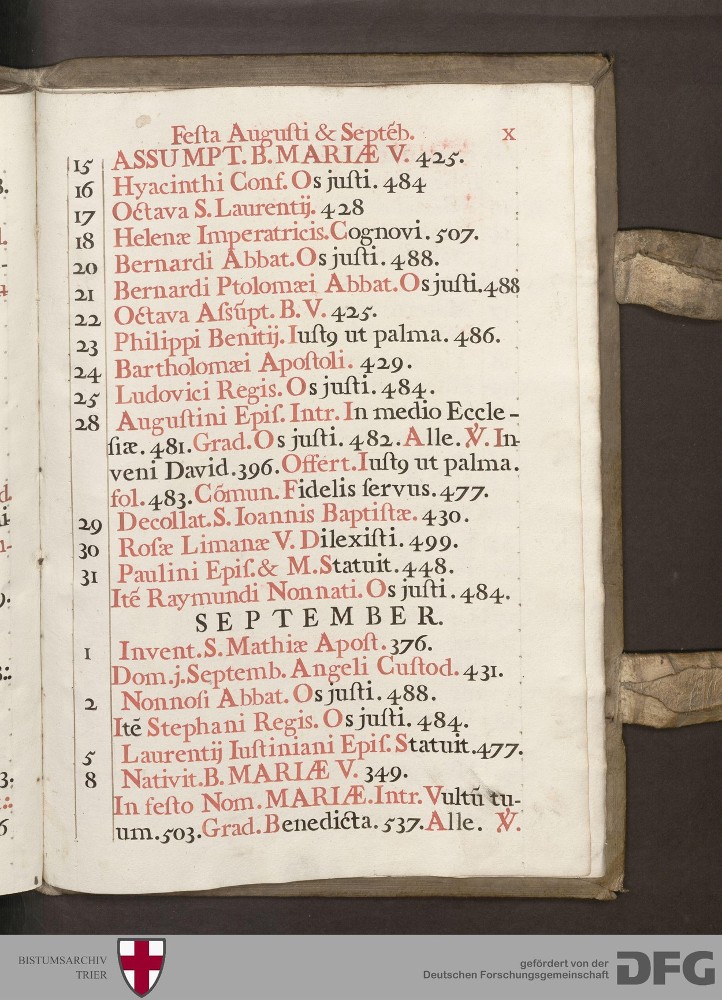 Feſta Auguſti & Septẽb. x
15 ASSUMPT. B. MARIÆ V. 425.
16 Hyacinthi Conf. Os juſti. 484
17 Octava S. Laurentij. 428
18 Helenæ Imperatricis. Cognovi. 507.
20 Bernardi Abbat. Os juſti. 488.
21 Bernardi Ptolomæi Abbat. Os juſti. 488
22 Octava Aſsũpt. B. V. 425.
23 Philippi Benitij. Iuſt9 ut palma. 486.
24 Bartholomæi Apoſtoli. 429.
25 Ludovici Regis. Os juſti. 484.
28 Auguſtini Epiſ. Intr. In medio Eccle-
ſiæ. 481. Grad. Os juſti. 482. Alle. ℣. In-
veni David. 396. Offert. Iuſt9 ut palma.
fol. 483. Cõmun. Fidelis ſervus. 477.
29 Decollat. S. Ioannis Baptiſtæ. 430.
30 Roſæ Limanæ V. Dilexiſti. 499.
31 Paulini Epiſ. & M. Statuit. 448.
Itẽ Raymundi Nonnati. Os juſti. 484.
SEPTEMBER.
1 Invent. S. Mathiæ Apoſt. 376.
Dom. j. Septemb. Angeli Cuſtod. 431.
2 Nonnoſi Abbat. Os juſti. 488.
Itẽ Stephani Regis. Os juſti. 484.
5 Laurentij Iuſtiniani Epiſ. Statuit. 477.
8 Nativit. B. MARIÆ V. 349.
In feſto Nom. MARIÆ. Intr. Vultũ tu-
um. 503. Grad. Benedicta. 537. Alle. ℣.
BISTUMSARCHIV
TRIER
gefördert von der
Deutschen Forschungsgemeinschaft
DFG